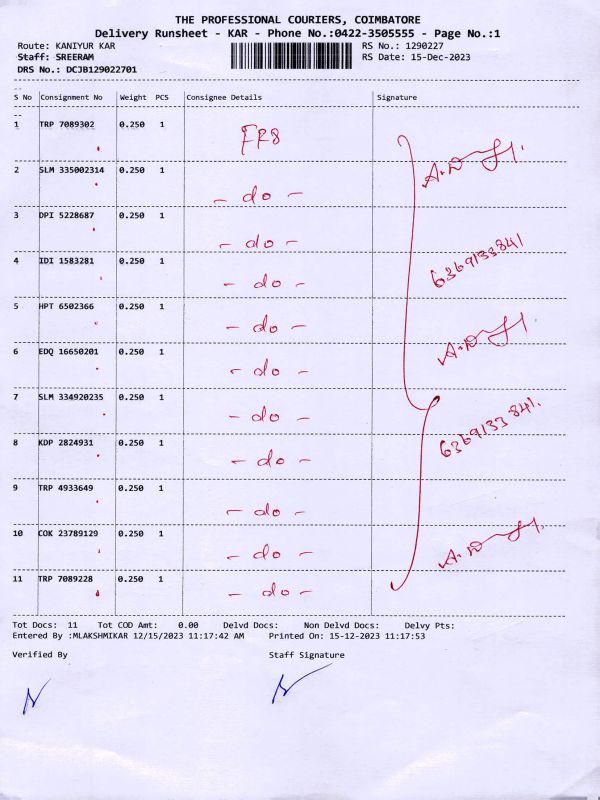 THE PROFESSIONAL COURIERS, COIMBATORE
Delivery Runsheet - KAR - Phone No.:0422-3505555 - Page No.:1
Route: KANIYUR KAR RS No.: 1290227
Staff: SREERAM RS Date: 15-Dec-2023
DRS No.: DCJB129022701
S No Consignment No Weight PCS Consignee Details Signature
1 TRP 7089302 0.250 1
2 SLM 335002314 0.250 1 - do -
3 DPI 5228687 0.250 1 - do -
6369133841
4 IDI 1583281 0.250 1 - do -
5 HPT 6502366 0.250 1 - do -
6 EDQ 16650201 0.250 1 - do -
7 SLM 334920235 0.250 1 - do -
6369133841.
8 KDP 2824931 0.250 1 - do -
9 TRP 4933649 0.250 1 - do -
10 COK 23789129 0.250 1 - do -
11 TRP 7089228 0.250 1 - do -
Tot Docs: 11 Tot COD Amt: 0.00 Delvd Docs: Non Delvd Docs: Delvy Pts:
Entered By :MLAKSHMIKAR 12/15/2023 11:17:42 AM Printed On: 15-12-2023 11:17:53
Verified By Staff Signature